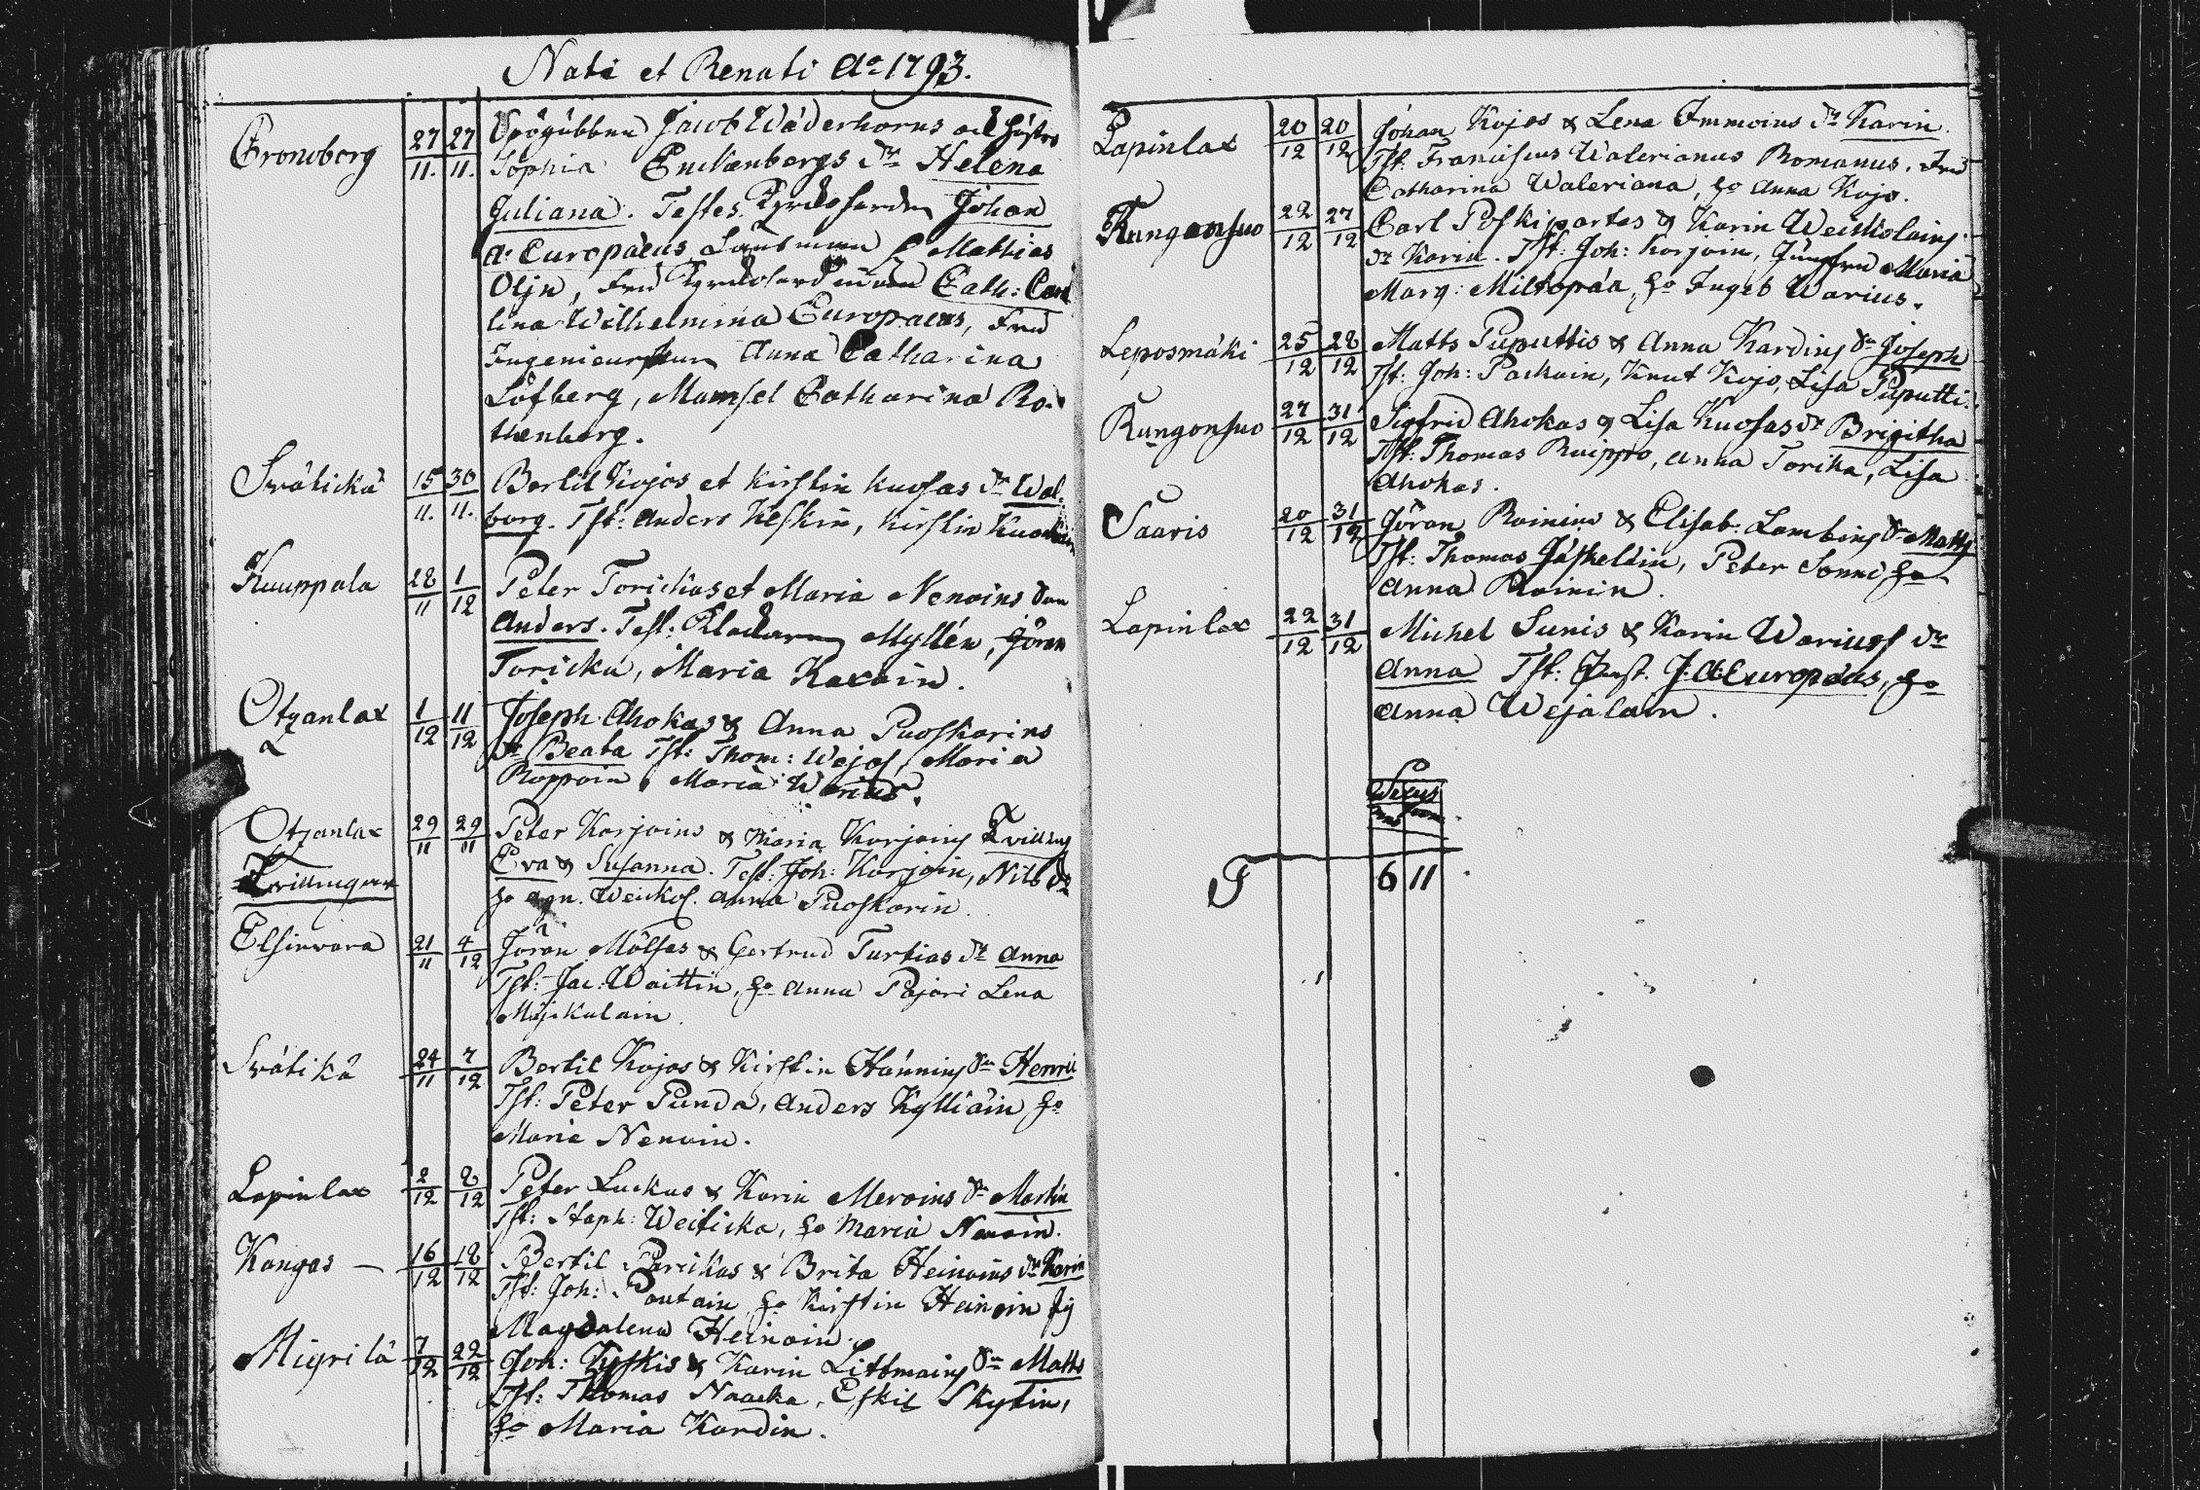 Nati et Renati Ao 1793.
Cronoborg 27/11. 27/11. Jacob Wäderhorns och Hustrs
Sophia Enckenbergs dr Helena
Juliana. Testes. Kyrckoherden Johan
A: Europaeus, Länsman Mathias
Olin, Fru Kyrckoherdinnan Cath: Caro
lina Wilhelmina Europaeus, Fru
Anna Catharina
Löfberg, Mamsel Catharina Ro-
thenberg.
Svätickä 15/11. 30/11. Bertil Kojos et Kirstin Kuosas dr Wal-
borg. Tst: Anders Keskin, Kirstin
Kuuppala 28/11 1/12 Peter Torickas et Maria Nenoins Son
Anders. Test: Klockaren Myllén, Jöran
Toricka, Maria Karoin.
Otzanlax 1/12 11/12 Joseph Ahokas & Anna Puoskarins
dr Beata Tst: Thom: Wejas, Maria
Roppoin, Maria Warius.
Otzanlax 29/11 29/11 Peter Korjoins & Maria Korjoins Tvilling
Tvillingar Eva & Susanna. Test: Joh: Korjoin, Nils
ho Agn. Weickol. Anna Puoskarin
Elsinvara 21/11 4/12 Jöran Mölsas & Gertrud Turtias dr Anna
Tst: Jac: Waittin, ho Anna Pajari Lena
Myjkulain.
Svätikä 24/11 7/12 Bertil Kojos & Kirstin Hännins Sn Henric
Tst: Peter Punda, Anders Kylliäin ho
Maria Nenoin.
Lapinlax 2/12 8/12 Peter Luckas & Karin Meroins Sn Martin
Tst: Staph: Weiticka, ho Maria Nenoin.
Kangas — 16/12 18/12 Bertil Parikas & Brita Heinoins dr Karin
Tst: Joh: Poutain ho Kirstin Heinoin
Magdalena Heinoin.
Migrilä 7/12 22/12 Joh: Kyskis & Karin Littmains Sn Matts
Tst: Thomas Naacka, Eskil Skytin,
ho Maria Kardin.
Lapinlax 20/12 20/12 Johan Kojos & Lena Immoins dr Karin.
Tst: Franciscus Walerianus Romanus, Fru
Catharina Waleriana, ho Anna Kojo.
Kungonsuo 22/12 27/12 Carl Poskipartas & Karin Weickolains
dr Karin. Tst: Joh: Korjoin, Jungfru Maria
Marg: Miltopäa, ho Ingeb Warius.
Leposmäki 25/12 28/12 Matts Puputtis & Anna Kardins Sn Joseph
Tst: Joh: Packain, Knut Kojo, Lisa Puputti.
Rungonsuo 27/12 31/12 Sigfrid Ahokas & Lisa Kuosas dr Brigitha
Tst: Thomas Ruippo, Anna Torika, Lisa
Ahokas.
Saaris 20/12 31/12 Jöran Roinins & Elisab: Lambins Sn Matts
Tst: Thomas Jäskeläin, Peter Sonni ho
Anna Roinin.
Lapinlax 22/12 31/12 Michel Sunis & Karin Wariuss dr
Anna Tst: J: A: Europaeus, ho
Anna Wejalain.
Sexus
6 11